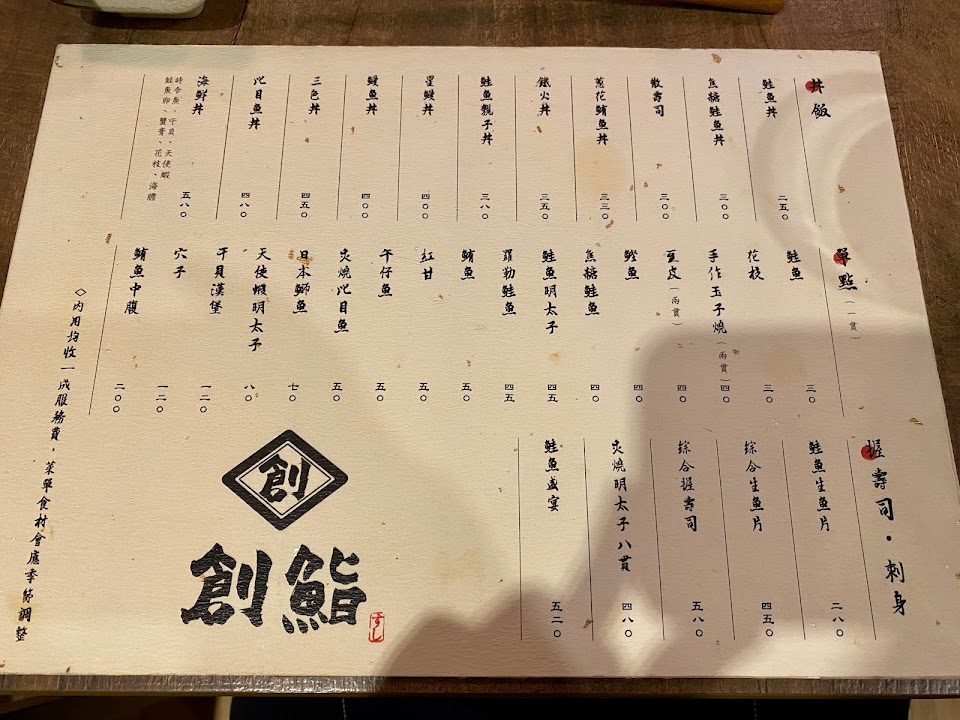 丼飯
鮭魚丼 二五〇
焦糖鮭魚丼 三〇〇
散壽司 三〇〇
蔥花鮪魚丼 三三〇
鐵火丼 三五〇
鮭魚親子丼 三八〇
星鰻丼 四〇〇
鰻魚丼 四〇〇
三色丼 四五〇
比目魚丼 四八〇
海鮮丼 五八〇
時令魚、干貝、天使蝦
鮭魚卵、蟹膏、花枝、海膽
單點(一貫)
鮭魚 三〇
花枝 三〇
手作玉子燒(兩貫) 四〇
豆皮(兩貫) 四〇
鰹魚 四〇
焦糖鮭魚 四〇
鮭魚明太子 四五
羅勒鮭魚 四五
鮪魚 五〇
紅甘 五〇
午仔魚 五〇
炙燒比目魚 五〇
日本鰤魚 七〇
天使蝦明太子 八〇
干貝漢堡 一二〇
穴子 一二〇
鮪魚中腹 二〇〇
握壽司・刺身
鮭魚生魚片 二八〇
綜合生魚片 四五〇
綜合握壽司 五八〇
炙燒明太子八貫 四八〇
鮭魚盛宴 五二〇
創
創鮨
すし
◇內用均收一成服務費，菜單食材會應季節調整